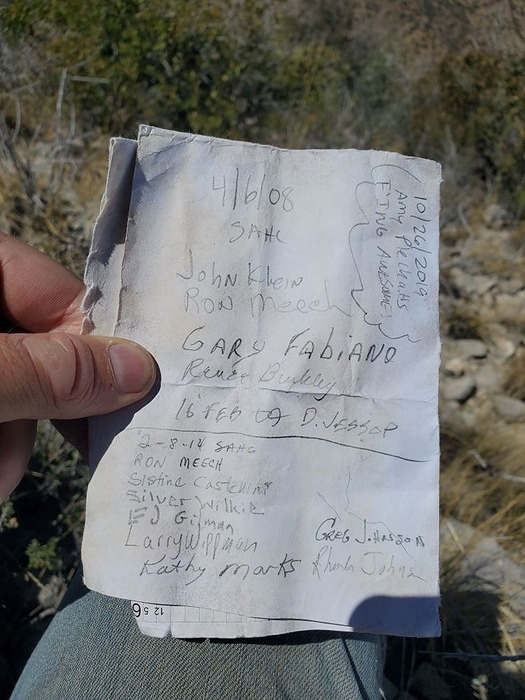 4/6/08
SAHC
John Klein
RON Meech
GARY FABIANO
Renee Buckley
16 FEB 09 D. JESSOP
10/26/2019
Amy
F'ING AWESOME!
2-8-14 SAHC
RON MEECH
Sistine
Silver Wilkie
EJ Gilman
Larry
Kathy Marks
GREG J. HASSON
Rhonda Johns
12 5 6